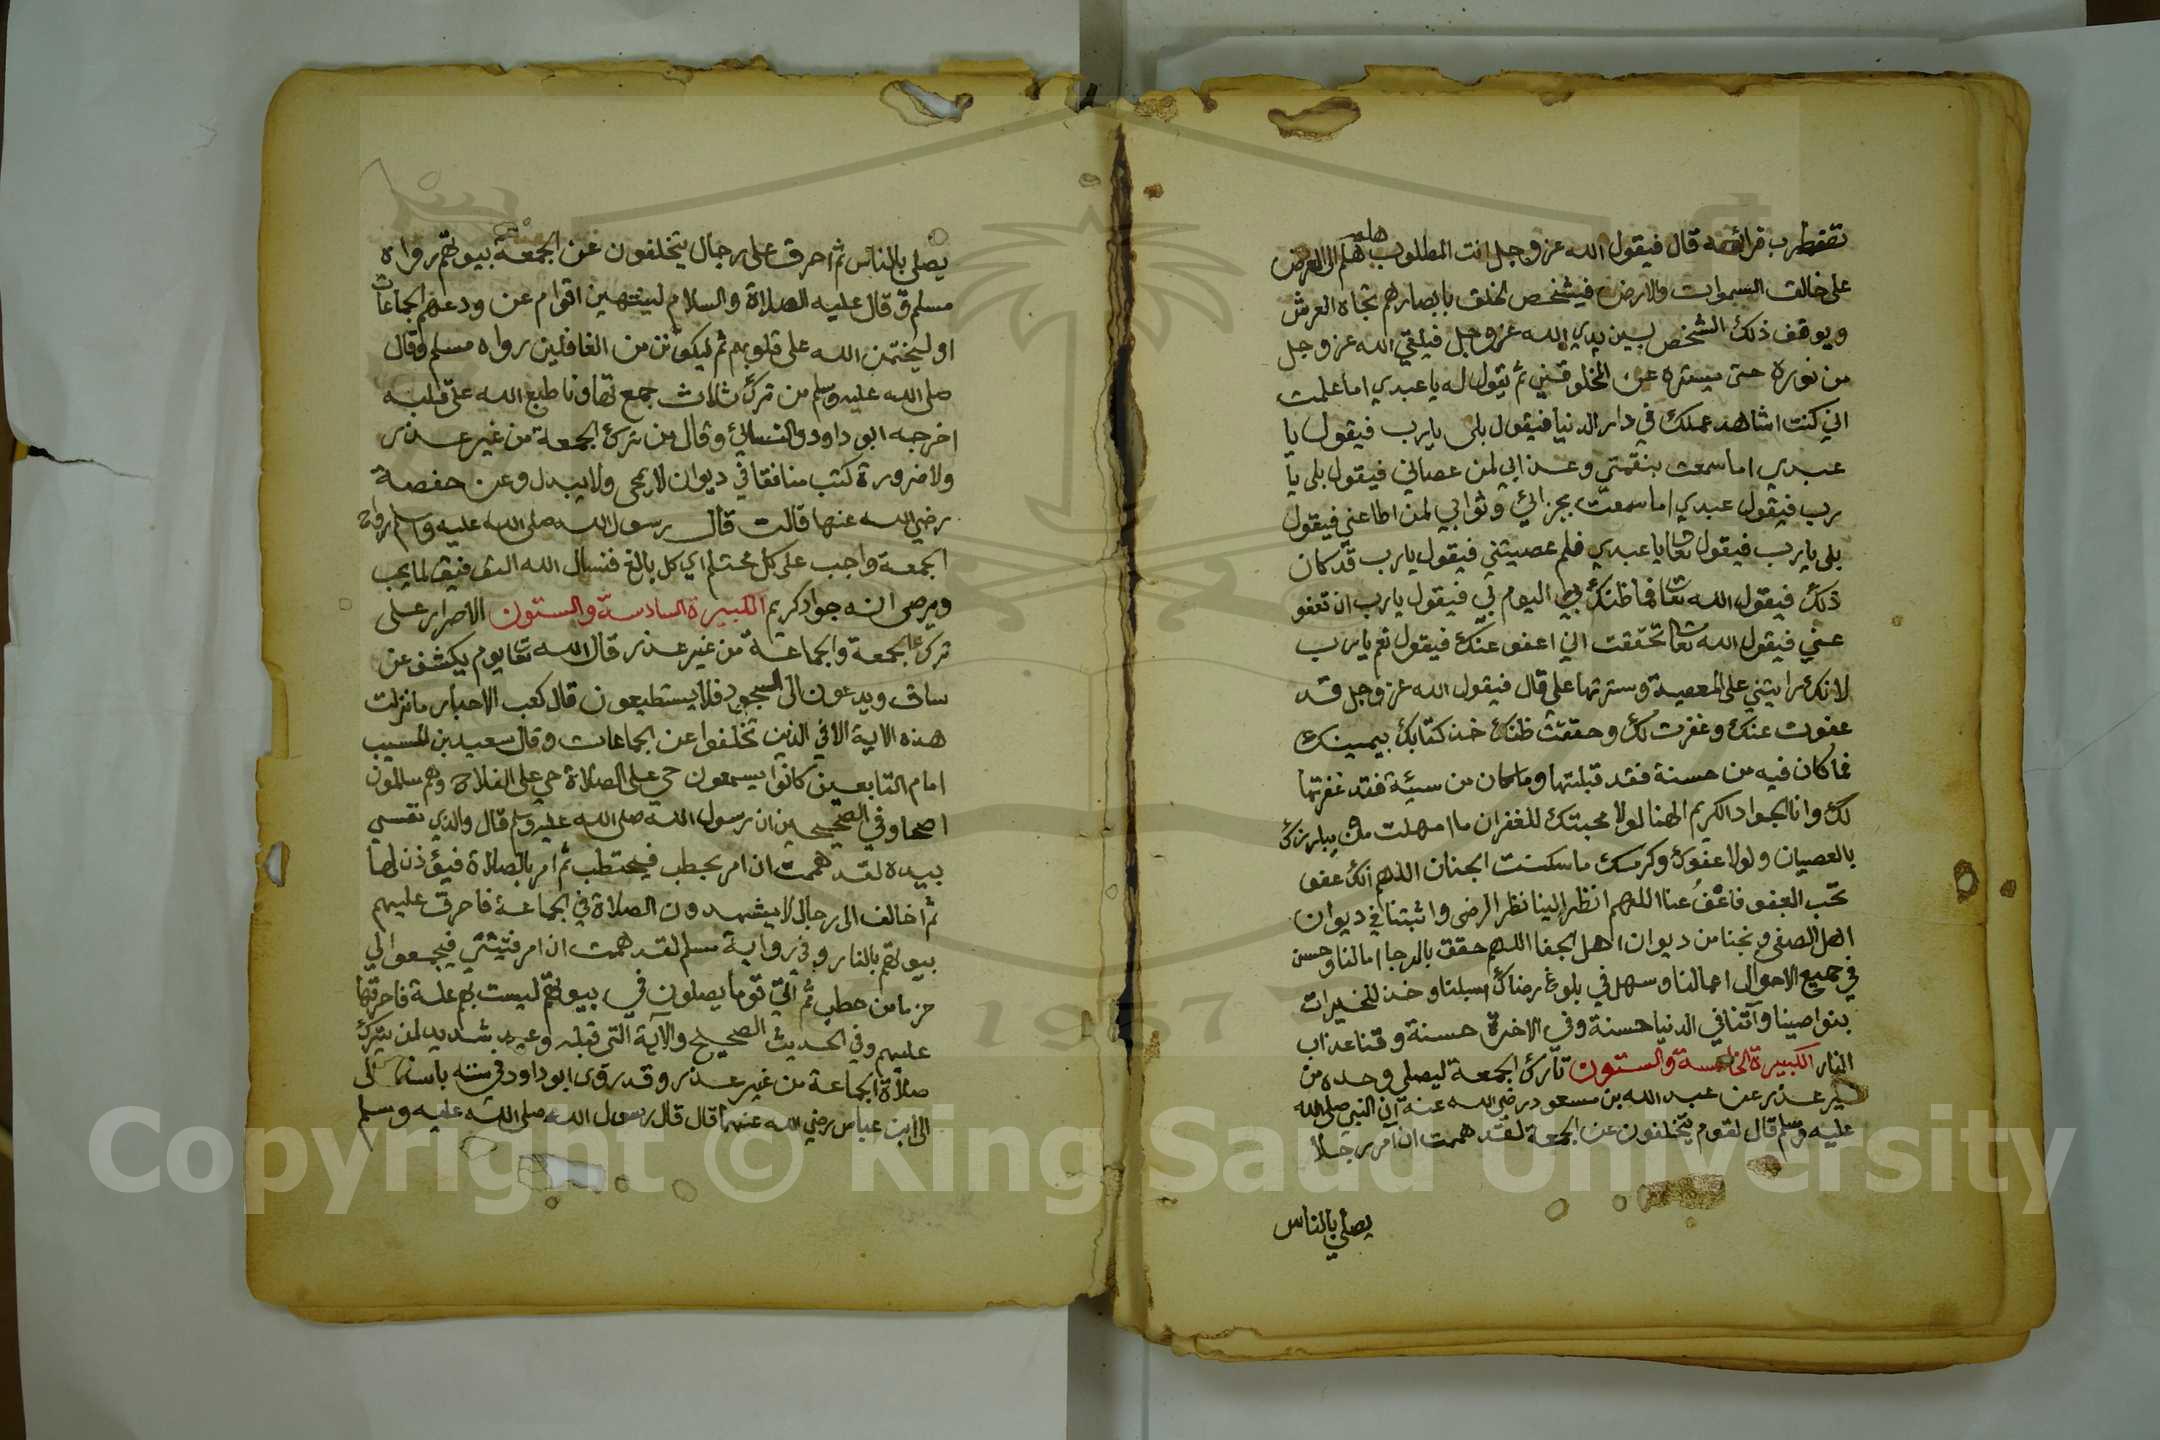 تضطرب فرائصه قال فيقول الله عز وجل انت المطلوب هلم الى العرض
على خالق السموات والارض فيشخص الخلق بابصارهم تجاه العرش
ويوقف ذلك الشخص بين يدي الله عز وجل فيلقي الله عز وجل
من نوره حتى يستره عن المخلوقين ثم يقول له يا عبدي اما علمت
اني كنت اشاهد عملك في دار الدنيا فيقول بلى يا رب فيقول يا
عبدي اما سمعت بنقمتي وعذابي لمن عصاني فيقول بلى يا
رب فيقول عبدي اما سمعت بجزائي وثوابي لمن اطاعني فيقول
بلى يا رب فيقول تعا يا عبدي فلم عصيتني فيقول يا رب قد كان
ذلك فيقول الله تعا فما ظنك اليوم بي فيقول يا رب ان تعفو
عني فيقول الله تعا تحققت اني اعفو عنك فيقول نعم يا رب
لانك رايتني على المعصية وسترتها علي قال فيقول الله عز وجل قد
عفوت عنك وغفرت لك وحققت ظنك خذ كتابك بيمينك
فما كان فيه من حسنة فقد قبلتها وما كان من سيئة فقد غفرتها
لك وانا الجواد الكريم الهنا لولا محبتك للغفران ما امهلت من يبارزك
بالعصيان ولولا عفوك وكرمك ما سكنت الجنان اللهم انك عفو
تحب العفو فاعف عنا اللهم انظر الينا نظر الرضى واثبتنا في ديوان
اهل الصفى ونجنا من ديوان اهل الجفا اللهم حقق بالرجا امالنا وحسن
في جميع الاحوال اعمالنا وسهل في بلوغ رضاك سبلنا وخذ للخيرات
بنواصينا وآتنا في الدنيا حسنة وفي الاخرة حسنة وقنا عذاب
النار الكبيرة الخامسة والستون تارك الجمعة ليصلي وحده من
غير عذر عن عبد الله بن مسعود رضي الله عنه ان النبي صلى الله
عليه وسلم قال لقوم يتخلفون عن الجمعة لقد هممت ان آمر رجلا
يصلي بالناس
يصلي بالناس ثم احرق على رجال يتخلفون عن الجمعة بيوتهم رواه
مسلم وقال عليه الصلاة والسلام لينتهين اقوام عن ودعهم الجماعات
او ليختمن الله على قلوبهم ثم ليكونن من الغافلين رواه مسلم وقال
صلى الله عليه وسلم من ترك ثلاث جمع تهاونا طبع الله على قلبه
اخرجه ابو داود والنسائي وقال من ترك الجمعة من غير عذر
ولا ضرورة كتب منافقا في ديوان لا يمحى ولا يبدل وعن حفصة
رضي الله عنها قالت قال رسول الله صلى الله عليه وسلم رواح
الجمعة واجب على كل محتلم اي كل بالغ فنسال الله التوفيق لما يحب
ويرضى انه جواد كريم الكبيرة السادسة والستون الاصرار على
ترك الجمعة والجماعة من غير عذر قال الله تعا يوم يكشف عن
ساق ويدعون الى السجود فلا يستطيعون قال كعب الاحبار ما نزلت
هذه الاية الا في الذين تخلفوا عن الجماعات وقال سعيد بن المسيب
امام التابعين كانوا يسمعون حي على الصلاة حي على الفلاح وهم سالمون
اصحا وفي الصحيحين ان رسول الله صلى الله عليه وسلم قال والذي نفسي
بيده لقد هممت ان امر بحطب فيحتطب ثم امر بالصلاة فيؤذن لها
ثم اخالف الى رجال لا يشهدون الصلاة في الجماعة فاحرق عليهم
بيوتهم بالنار وفي رواية مسلم لقد هممت ان امر فتيتي فيجمعوا لي
حزما من حطب ثم اتي قوما يصلون في بيوتهم ليست بهم علة فاحرقها
عليهم وفي الحديث الصحيح والآية التي قبله وعيد شديد لمن يترك
صلاة الجماعة من غير عذر وقد روى ابو داود في سننه باسناده
الى ابن عباس رضي الله عنهما قال قال رسول الله صلى الله عليه وسلم
1957
Copyright © King Saud University